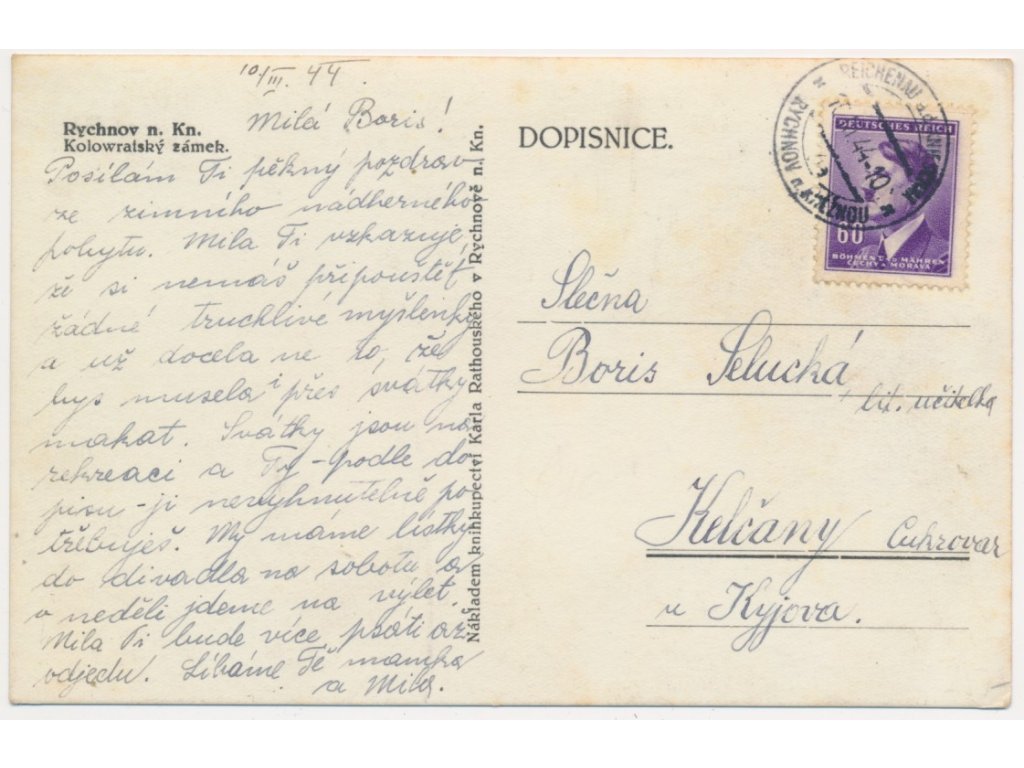 10/III. 44.
Milá Boris!
Rychnov n. Kn.
Kolowratský zámek.
Posílám Ti pěkný pozdrav
ze zimního nádherného
pobytu. Mila Ti vzkazuje
že si nemáš připouštět
žádné truchlivé myšlenky
a už docela ne to, že
bys musela i přes svátky
makat. Svátky jsou na
rekreaci a Ty - podle do
pisu - ji nevyhnutelně po
třebuješ. My máme lístky
do divadla na sobotu a
v neděli jdeme na výlet.
Mila Ti bude více psáti až
odjedu. Líbáme Tě mamka
a Mila.
Nákladem knihkupectví Karla Rathouského v Rychnově n. Kn.
DOPISNICE.
REICHENAU
RYCHNOV n
44-10
DEUTSCHES REICH
60
BÖHMEN UND MÄHREN
ČECHY A MORAVA
Slečna
Boris Selucká
lit. učitelka
Kelčany Cukrovar
u Kyjova.